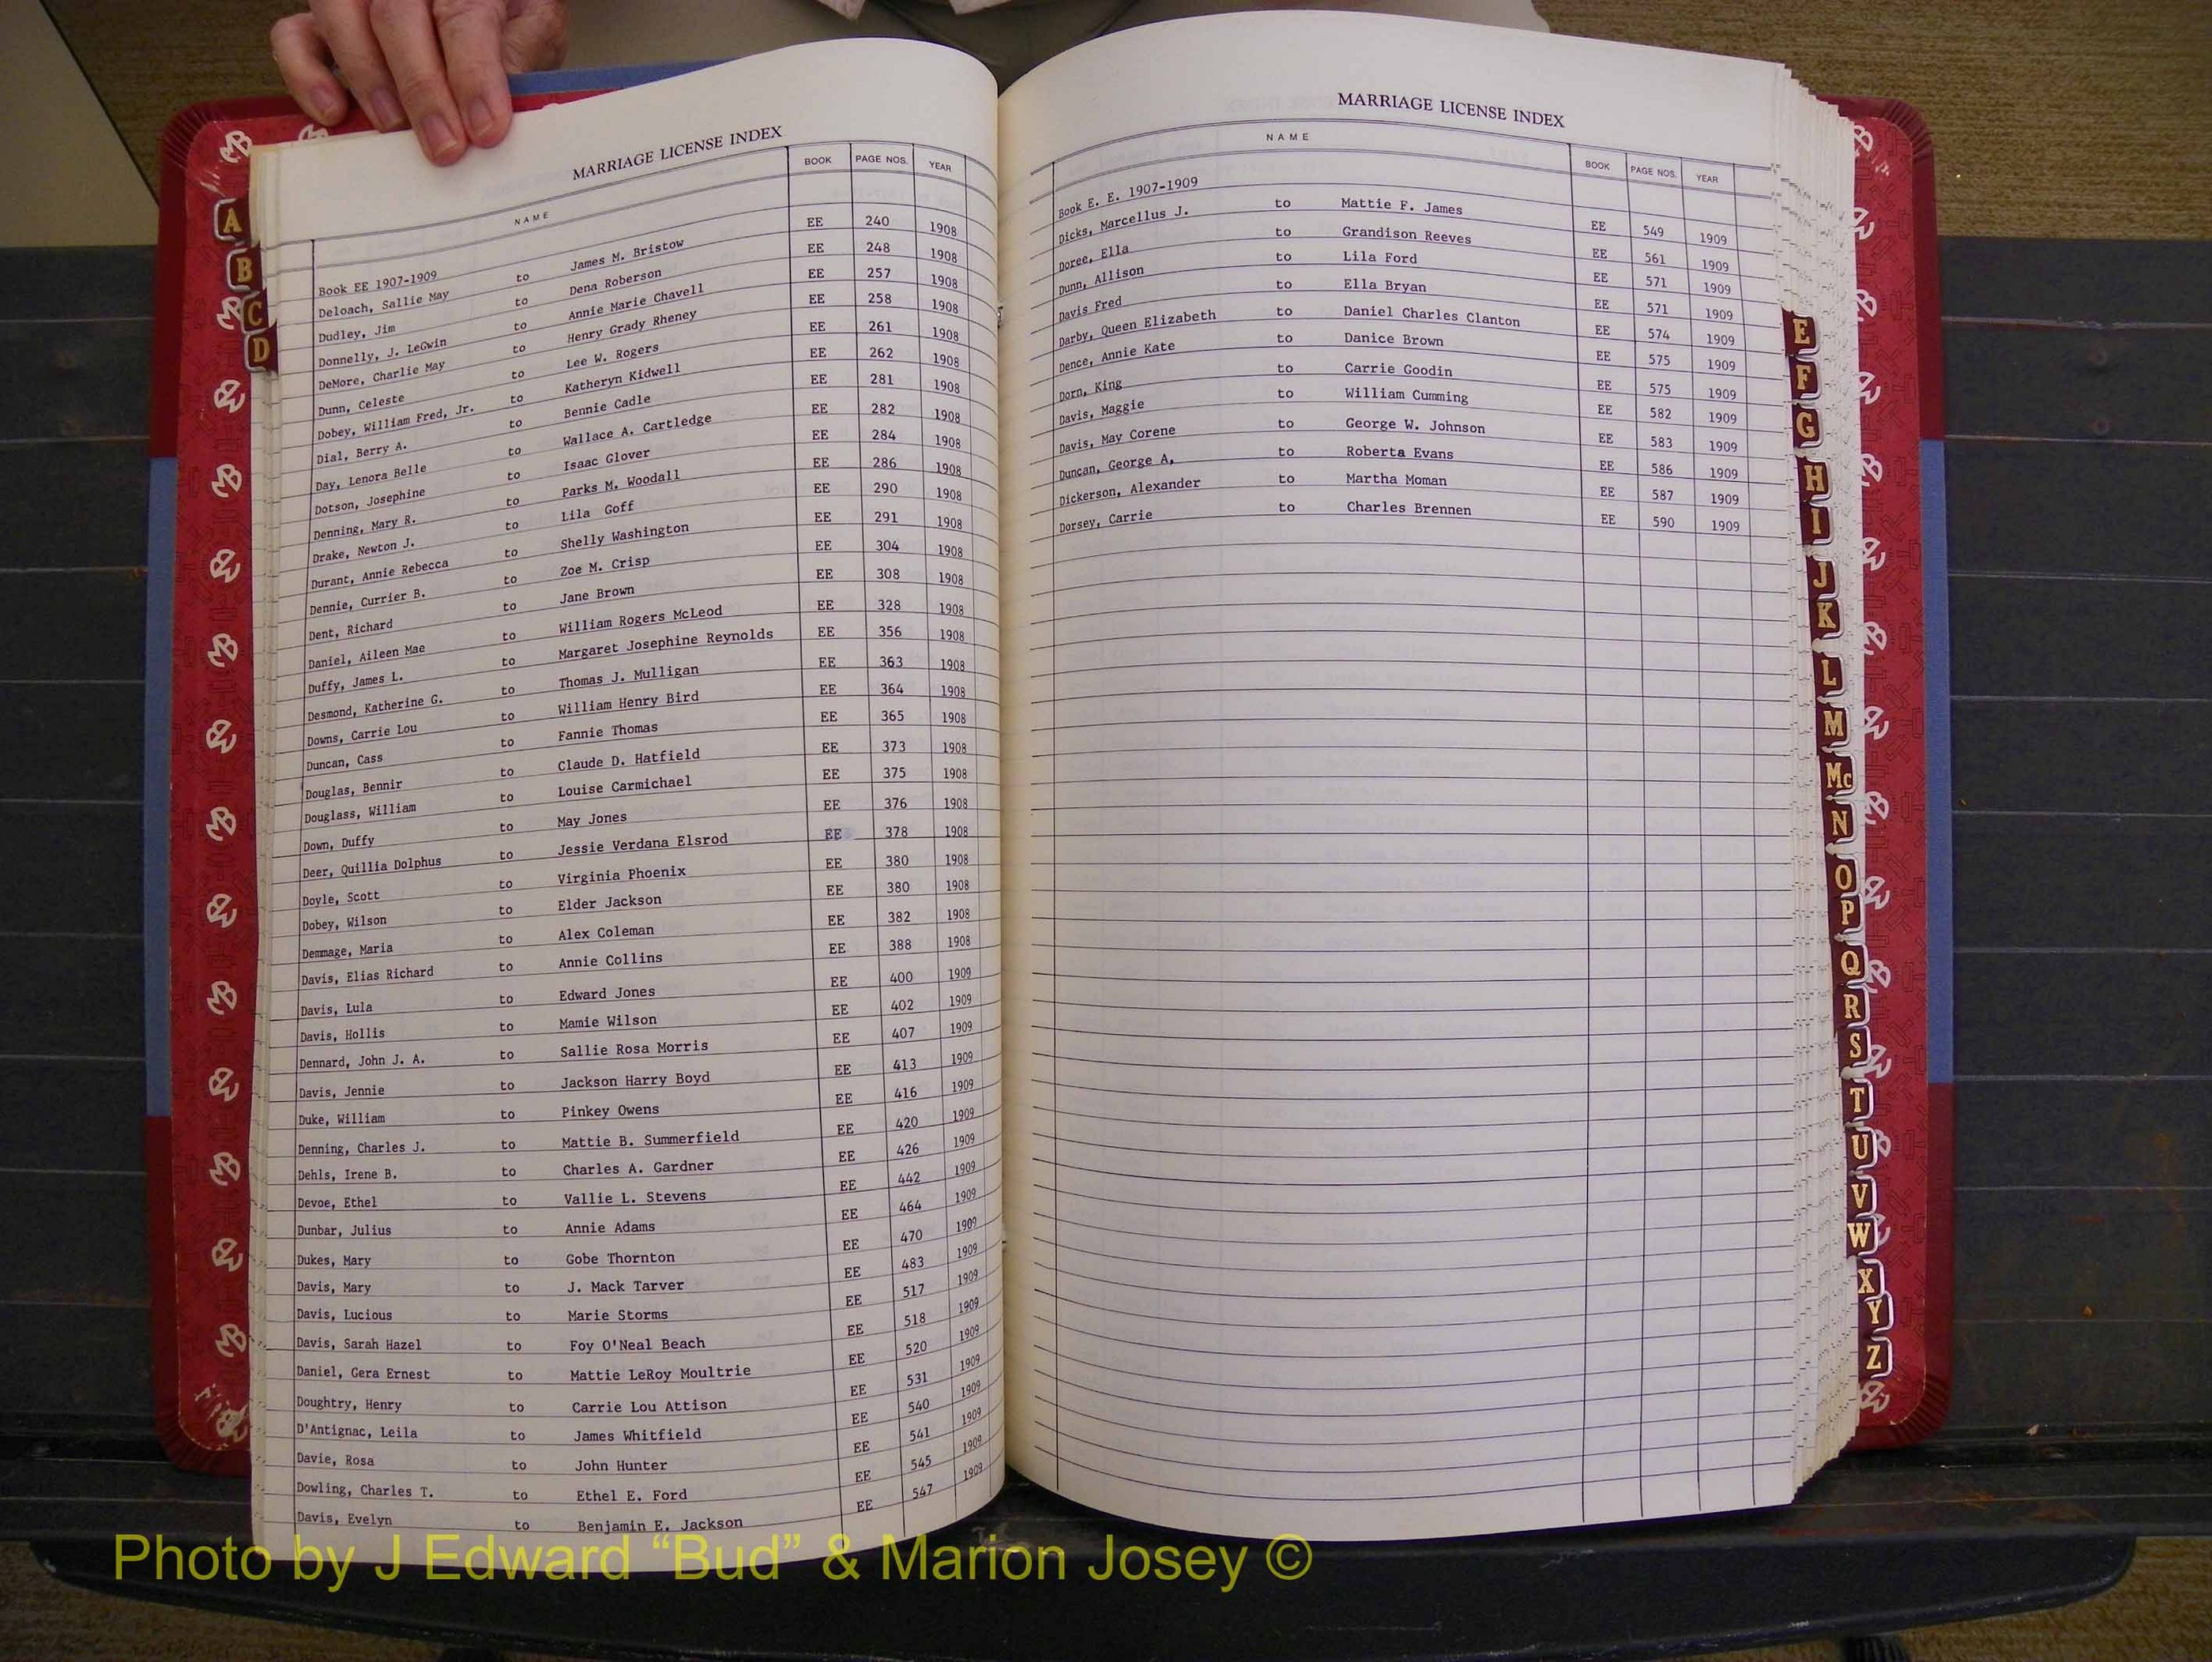 MARRIAGE LICENSE INDEX
NAME BOOK PAGE NOS. YEAR
Book EE 1907-1909
Deloach, Sallie May to James M. Bristow EE 240 1908
Dudley, Jim to Dena Roberson EE 248 1908
Donnelly, J. LeGwin to Annie Marie Chavell EE 257 1908
DeMore, Charlie May to Henry Grady Rheney EE 258 1908
Dunn, Celeste to Lee W. Rogers EE 261 1908
Dobey, William Fred, Jr. to Katheryn Kidwell EE 262 1908
Dial, Berry A. to Bennie Cadle EE 281 1908
Day, Lenora Belle to Wallace A. Cartledge EE 282 1908
Dotson, Josephine to Isaac Glover EE 284 1908
Denning, Mary R. to Parks M. Woodall EE 286 1908
Drake, Newton J. to Lila Goff EE 290 1908
Durant, Annie Rebecca to Shelly Washington EE 291 1908
Dennie, Currier B. to Zoe M. Crisp EE 304 1908
Dent, Richard to Jane Brown EE 308 1908
Daniel, Aileen Mae to William Rogers McLeod EE 328 1908
Duffy, James L. to Margaret Josephine Reynolds EE 356 1908
Desmond, Katherine G. to Thomas J. Mulligan EE 363 1908
Downs, Carrie Lou to William Henry Bird EE 364 1908
Duncan, Cass to Fannie Thomas EE 365 1908
Douglas, Bennir to Claude D. Hatfield EE 373 1908
Douglass, William to Louise Carmichael EE 375 1908
Down, Duffy to May Jones EE 376 1908
Deer, Quillia Dolphus to Jessie Verdana Elsrod EE 378 1908
Doyle, Scott to Virginia Phoenix EE 380 1908
Dobey, Wilson to Elder Jackson EE 380 1908
Demmage, Maria to Alex Coleman EE 382 1908
Davis, Elias Richard to Annie Collins EE 388 1908
Davis, Lula to Edward Jones EE 400 1909
Davis, Hollis to Mamie Wilson EE 402 1909
Dennard, John J. A. to Sallie Rosa Morris EE 407 1909
Davis, Jennie to Jackson Harry Boyd EE 413 1909
Duke, William to Pinkey Owens EE 416 1909
Denning, Charles J. to Mattie B. Summerfield EE 420 1909
Dehls, Irene B. to Charles A. Gardner EE 426 1909
Devoe, Ethel to Vallie L. Stevens EE 442 1909
Dunbar, Julius to Annie Adams EE 464 1909
Dukes, Mary to Gobe Thornton EE 470 1909
Davis, Mary to J. Mack Tarver EE 483 1909
Davis, Lucious to Marie Storms EE 517 1909
Davis, Sarah Hazel to Foy O'Neal Beach EE 518 1909
Daniel, Gera Ernest to Mattie LeRoy Moultrie EE 520 1909
Doughtry, Henry to Carrie Lou Attison EE 531 1909
D'Antignac, Leila to James Whitfield EE 540 1909
Davie, Rosa to John Hunter EE 541 1909
Dowling, Charles T. to Ethel E. Ford EE 545 1909
Davis, Evelyn to Benjamin E. Jackson EE 547 1909
MARRIAGE LICENSE INDEX
NAME BOOK PAGE NOS. YEAR
Book E. E. 1907-1909
Dicks, Marcellus J. to Mattie F. James EE 549 1909
Doree, Ella to Grandison Reeves EE 561 1909
Dunn, Allison to Lila Ford EE 571 1909
Davis Fred to Ella Bryan EE 571 1909
Darby, Queen Elizabeth to Daniel Charles Clanton EE 574 1909
Dence, Annie Kate to Danice Brown EE 575 1909
Dorn, King to Carrie Goodin EE 575 1909
Davis, Maggie to William Cumming EE 582 1909
Davis, May Corene to George W. Johnson EE 583 1909
Duncan, George A, to Roberta Evans EE 586 1909
Dickerson, Alexander to Martha Moman EE 587 1909
Dorsey, Carrie to Charles Brennen EE 590 1909
A
B
C
D
E
F
G
H
I
J
K
L
M
Mc
N
O
P
Q
R
S
T
U
V
W
X
Y
Z
Photo by J Edward “Bud” & Marion Josey ©